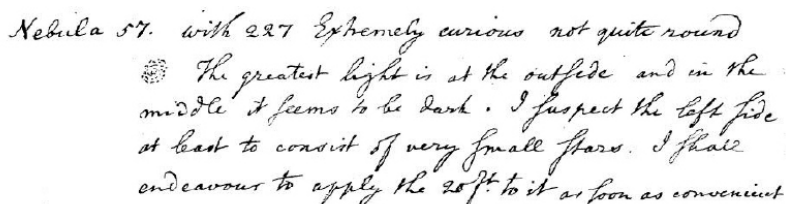 Nebula 57. with 227 Extremely curious not quite round
The greatest light is at the outside and in the
middle it seems to be dark. I suspect the left side
at least to consist of very small stars. I shall
endeavour to apply the 20ft. to it as soon as convenient